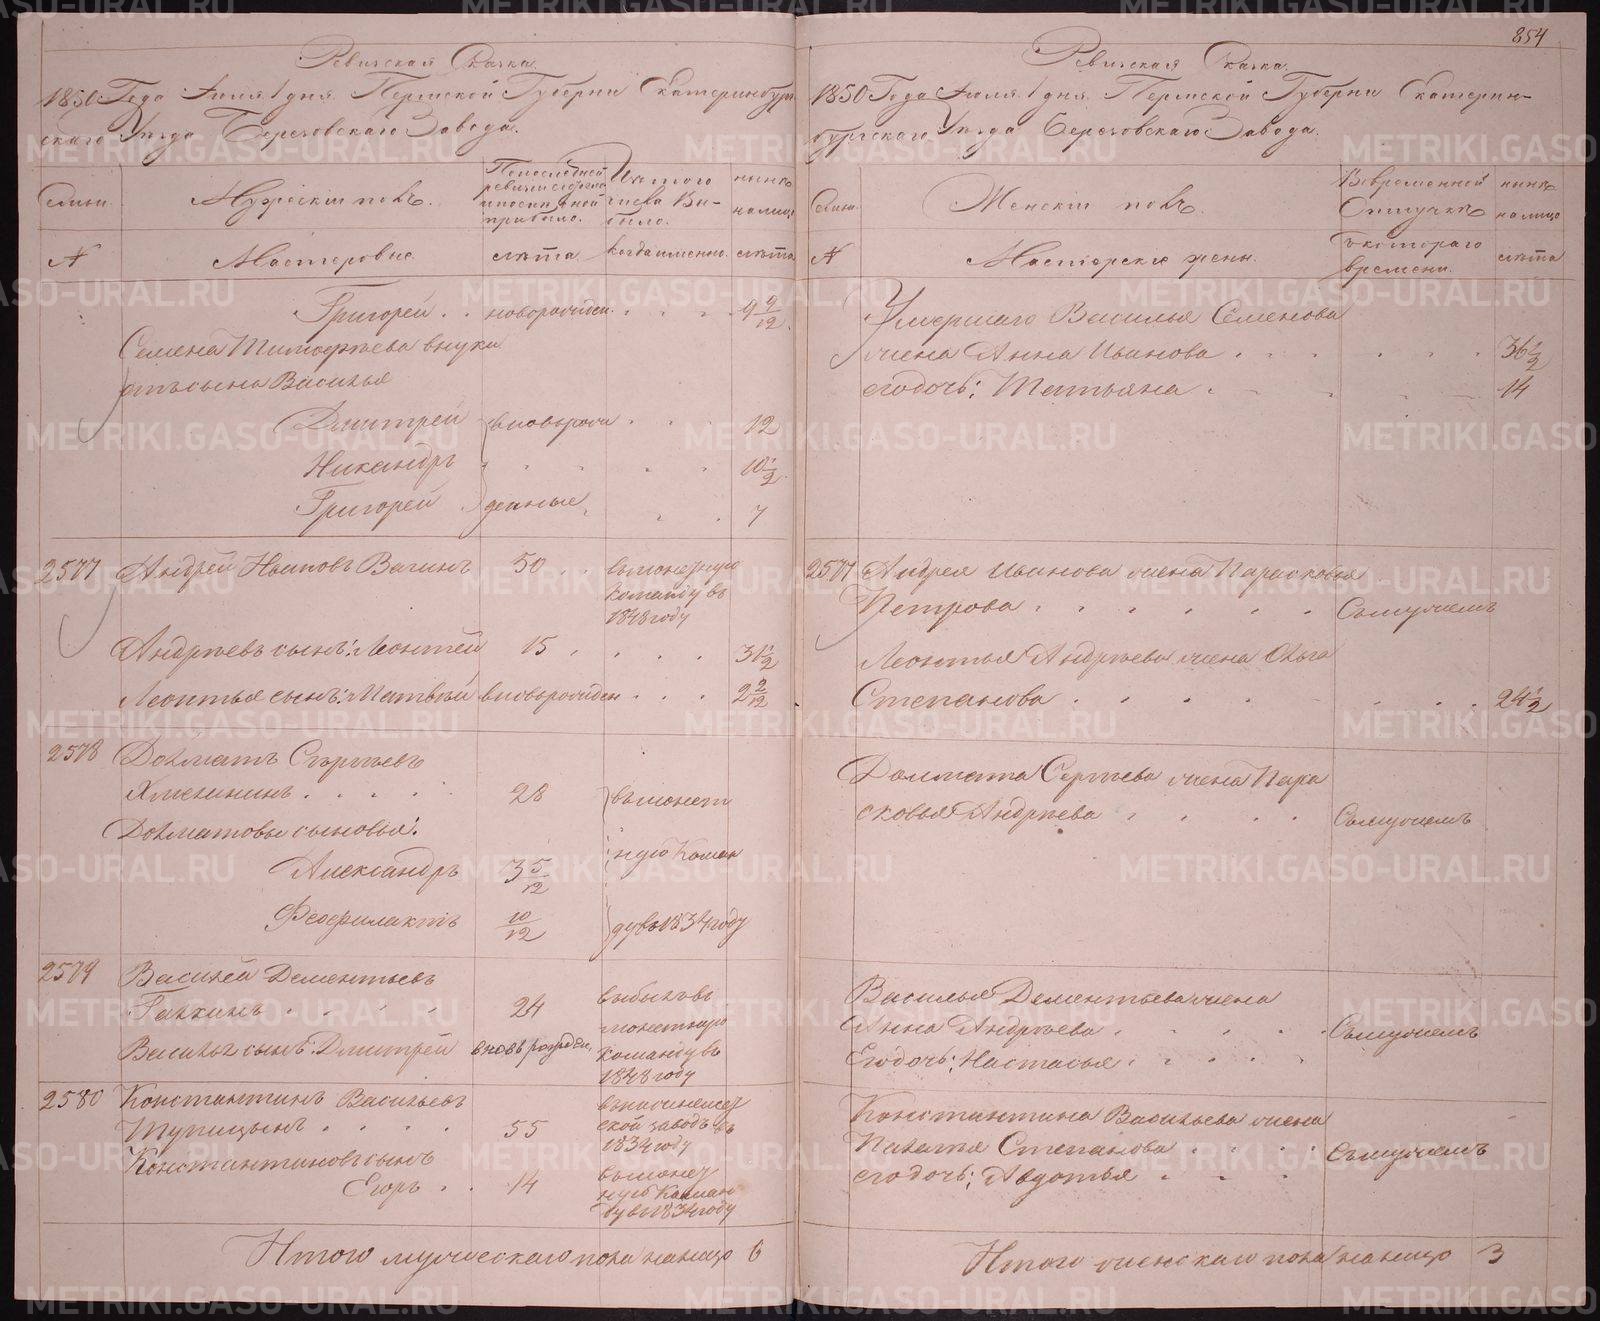 Ревижская Сказка.
1850 Года Июля 1 дня. Пермской Губерни Екатеринбург
скаго Уезда Березовскаго Завода.
Семьи.
Мужескiй полъ.
По последней
ревизии состояло
и после оной
прибыло.
Изъ того
числа Вы-
было.
ныне
на лицо
№
Мастеровые
лѣта
когда именно.
лѣта
Григорей . . новорожден. . . . 9 9/12.
Семена Тимофѣева внуки
отъ сына Василья
Дмитрей вновьрож . . . 12
Никандръ . . . . . 10 1/2
Григорей денные . . . 7
2577 Андрей Ивановъ Вагинъ 50 . . въ монетную
команду въ
1848 году
Андрѣевъ сынъ: Леонтей 15 . . . . 31 1/2
Леонтья сынъ: Матвѣй вновьрожден . . . 2 2/12
2578 Долматъ Сергѣевъ
Хмелининъ . . . . . 28 въ монет
Долматовы сыновья:
Александръ 3 5/12 ную Коман
Феофилактъ 10/12 ду въ 1834 году
2579 Василей Дементьевъ
Галкинъ . . . . 24
Васильа сынъ: Дмитрей вновь рожден.
выбылъ въ
монетную
команду въ
1848 году
2580 Константинъ Васильевъ
Тупицынъ . . . . 55
ской заводъ въ
1834 году
Константиновъ сынъ
Егоръ . . 14
въ монет
ную Коман
ду въ 1834 году
Итого мужескаго пола на лицо 6
854
Ревижская Сказка.
1850 Года Июля 1 дня. Пермской Губерни Екатерин-
бургскаго Уезда Березовскаго Завода.
Семьи.
Женскiй полъ.
Во временной
Отлучкѣ
ныне
на лицо
№
Мастерскiе жены.
съ котораго
времени.
лѣта
Умершаго Василья Семенова
жена Анна Иванова . . . . . . 36 1/2
егодочь: Татьяна . . . . . 14
2577 Андрея Иванова жена Парасковья
Петрова . . . . . . Съмужемъ
Леонтья Андрѣева жена Ольга
Степанова . . . . . . . . 24 1/2
Долмата Сергѣева жена Пара
сковья Андрѣева . . . . Съмужемъ
Василья Дементьева жена
Анна Андрѣева . . . . . Съмужемъ
Егодочь: Настасья . . . .
Константина Васильева жена
Наталья Степанова . . . . Съмужемъ
егодочь: Авдотья . . .
Итого женскаго пола на лицо 3
METRIKI.GASO-URAL.RU